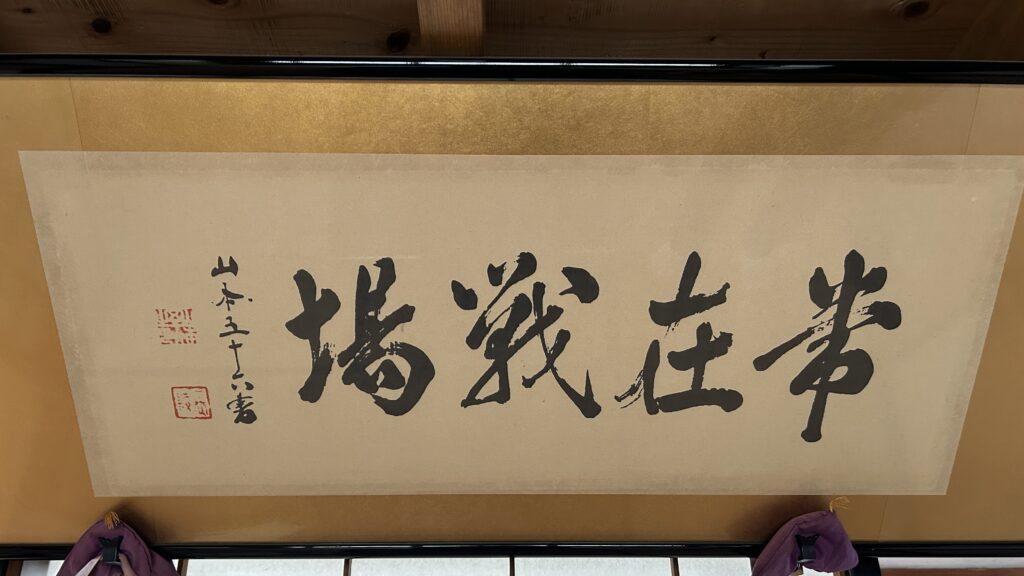 常在戦場
山本五十六書